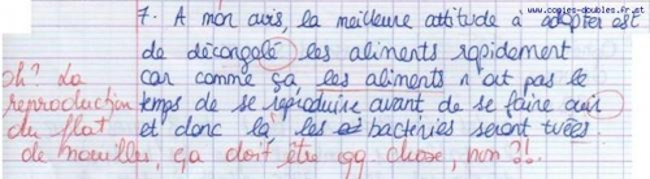 www.copies-doubles.fr.st
7. A mon avis, la meilleure attitude à adopter est
de décongalé les aliments rapidement
car comme ça les aliments n'ont pas le
temps de se reproduire avant de se faire cuir
et donc là, les bactéries seront tuées.
oh? La
reproduction
du plat
de nouilles, ça doit être qq chose, non ?!.